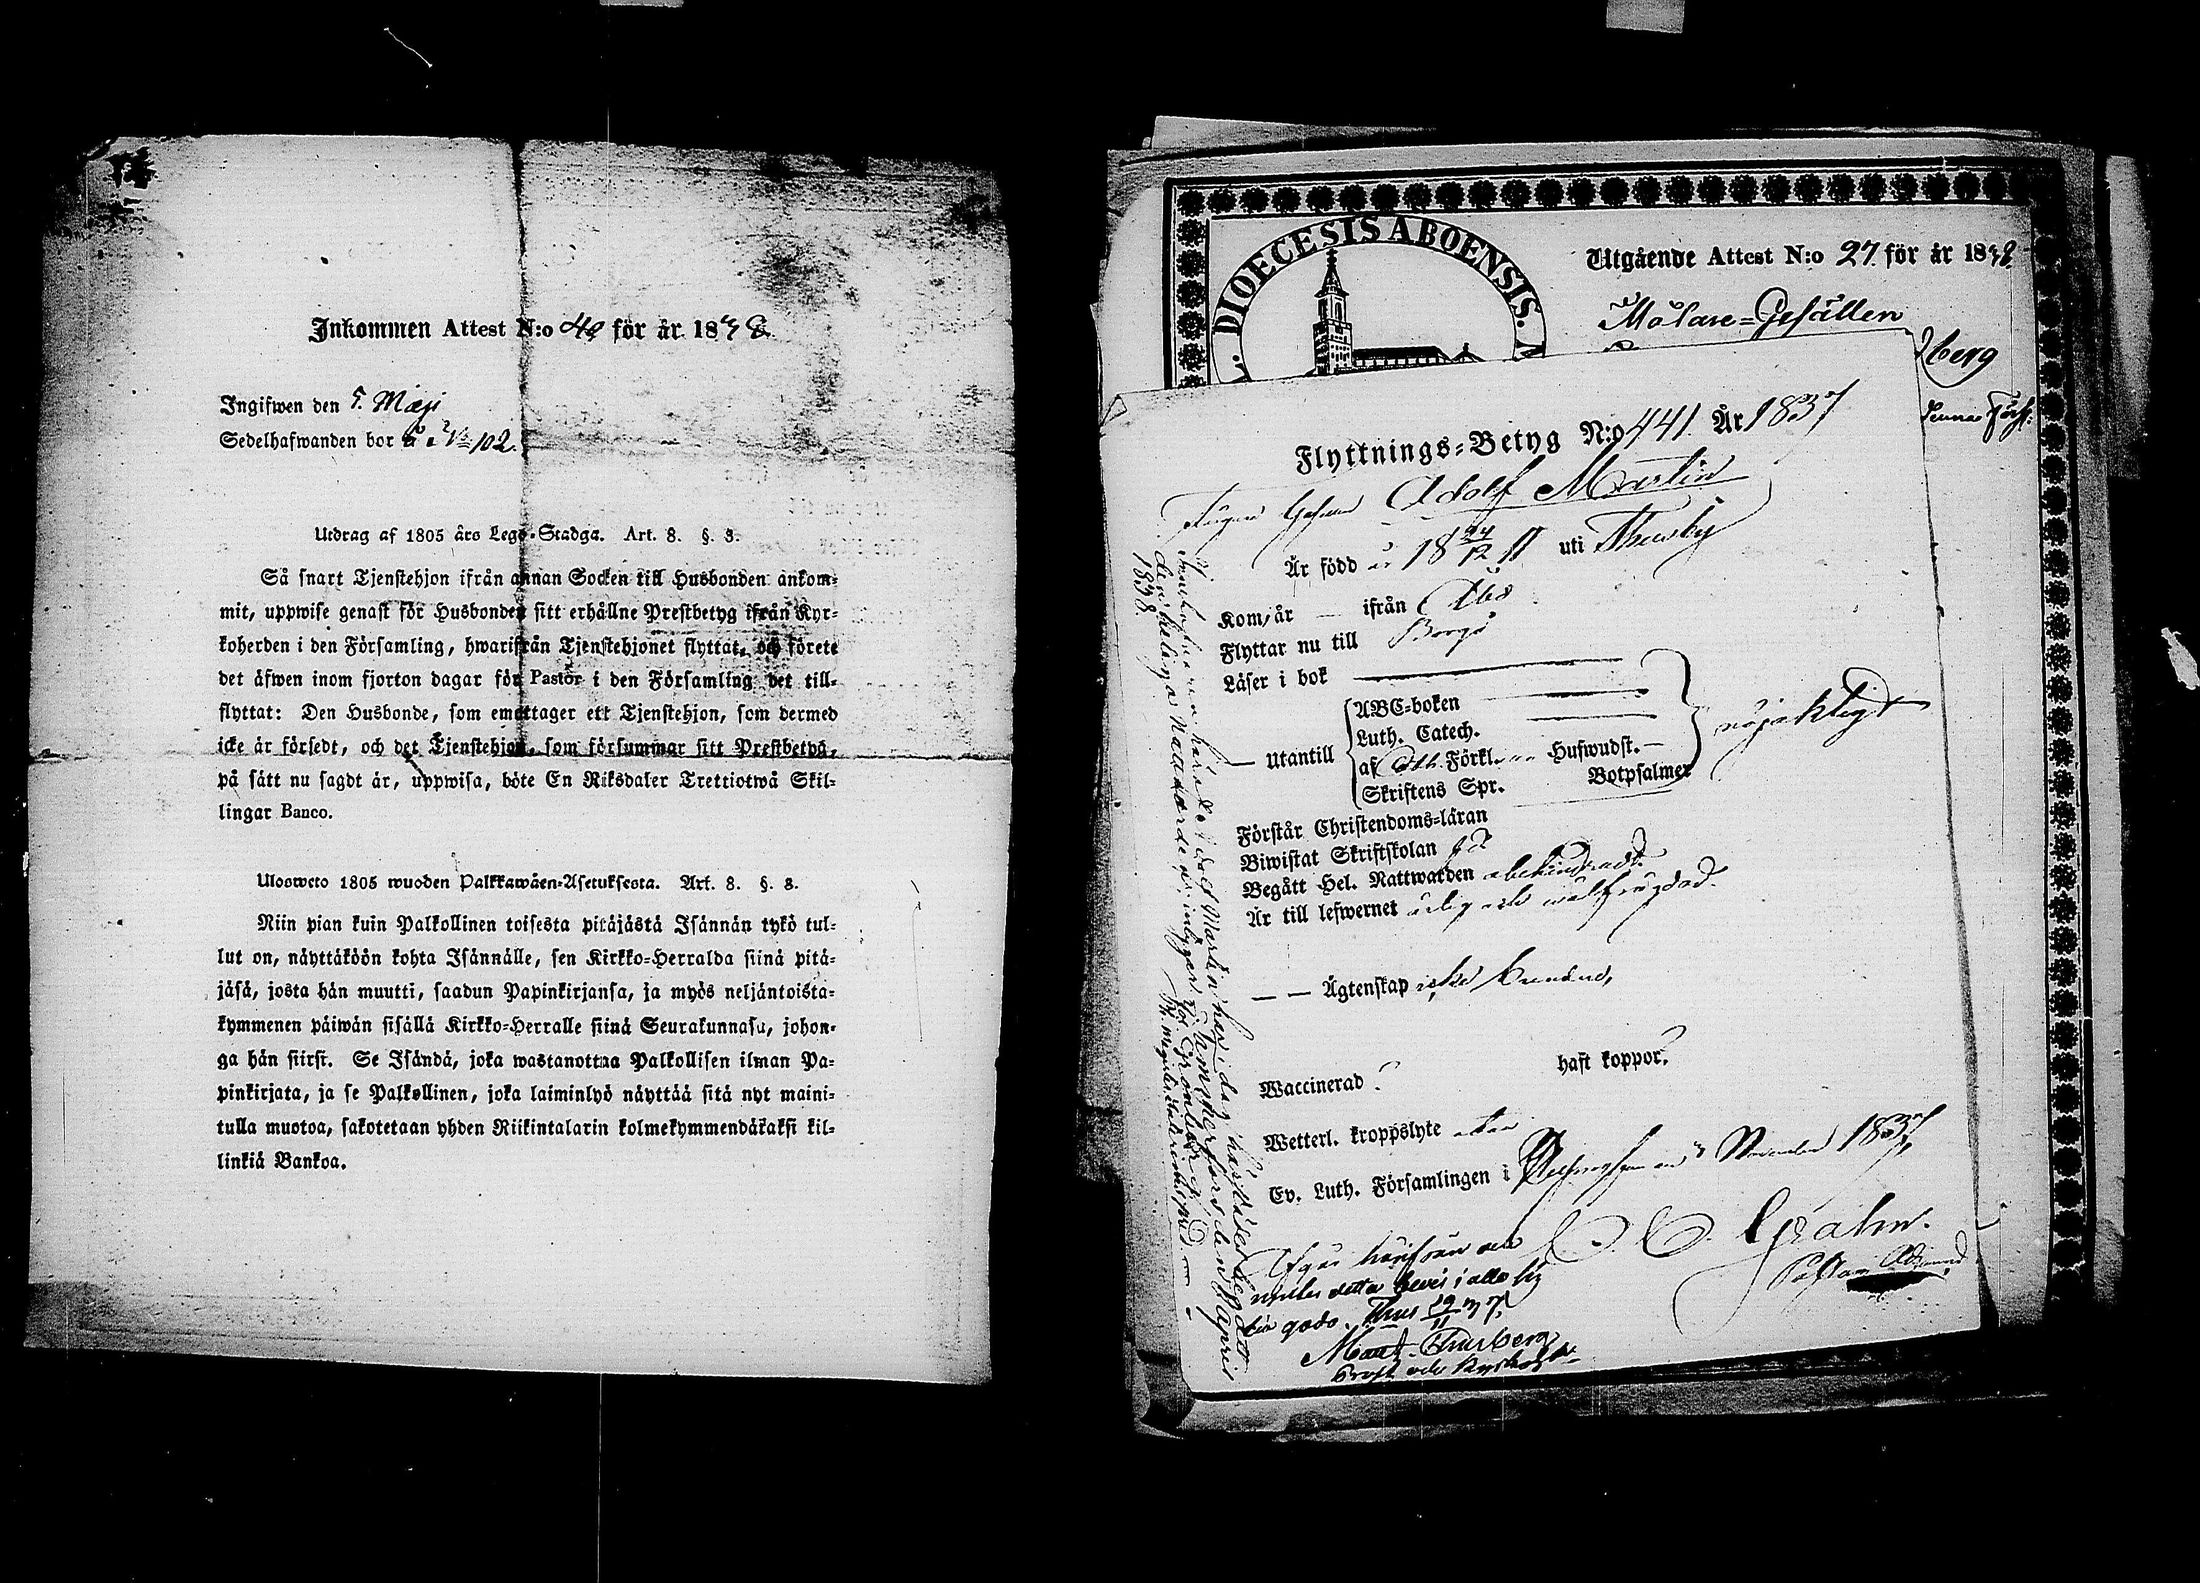 Inkommen Attest N:o 40 för år 1838
Ingifwen den 5. Maji
Sedelhafwanden bor N 102.
Utdrag af 1805 års Lego-Stadga. Art. 8. §. 3.
Så snart Tjenstehjon ifrån annan Socken till Husbonden ankom-
mit, uppwise genast för Husbonden sitt erhållne Prestbetyg ifrån Kyr-
koherden i den Församling, hwarifrån Tjenstehjonet flyttat, och förete
det äfwen inom fjorton dagar för Pastor i den Församling det till-
flyttat: Den Husbonde, som emottager ett Tjenstehjon, som dermed
icke är försedt, och det Tjenstehjon, som försummar sitt Prestbetyg,
på sätt nu sagdt är, uppwisa, böte En Riksdaler Trettiotwå Skil-
lingar Banco.
Ulosweto 1805 wuoden Palkkawäen-Asetuksesta. Art. 8. §. 3.
Niin pian kuin Palkollinen toisesta pitäjästä Isännän tykö tul-
lut on, näyttäköön kohta Isännälle, sen Kirkko-Herralda siinä pitä-
jäsä, josta hän muutti, saadun Papinkirjansa, ja myös neljäntoista-
kymmenen päiwän sisällä Kirkko-Herralle siinä Seurakunnasa, johon-
ga hän siirsi. Se Isändä, joka wastanottaa Palkollisen ilman Pa-
pinkirjata, ja se Palkollinen, joka laiminlyö näyttää sitä nyt maini-
tulla muotoa, sakotetaan yhden Riikintalarin kolmekymmendäkaksi kil-
linkiä Bankoa.
DIOECESIS ABOENSIS.
Utgående Attest N:o 27 för år 1838.
Målare-Gesällen
berg
Flyttnings-Betyg N:o 441. År 1837
Adolf Martin
Är född 18 24/12 11 uti Thusby
Kom, år — ifrån Åbo
Flyttar nu till Borgå
Läser i bok
— utantill
ABC-boken
Luth. Catech.
af Förkl. Huswudst. —
Skriftens Spr. Botpsalmer
nöjaktigt
Förstår Christendoms-läran
Biwistat Skriftskolan
Begått Hel. Nattwarden obehindradt.
Är till lefwernet ärlig och wälfrägdad.
— — Ägtenskap
Waccinerad haft koppor.
Wetterl. kroppslyte utan
Ev. Luth. Församlingen i Helsingfors November 1837.
Grahn.
Pastor
Innehafwaren häraf Adolf Martin har i dag härstädes begått
den heliga Nattvarden, intygar, Tammerfors den April
1838.
Afgår härifrån och
detta bevis i allo
godo. Thus 19/11 37.
Mart. Thusberg
Prost och